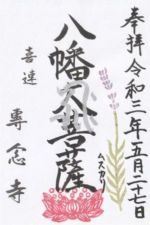 奉拝 令和三年五月二十七日
八幡大菩薩
ムスカリ
喜連
專念寺